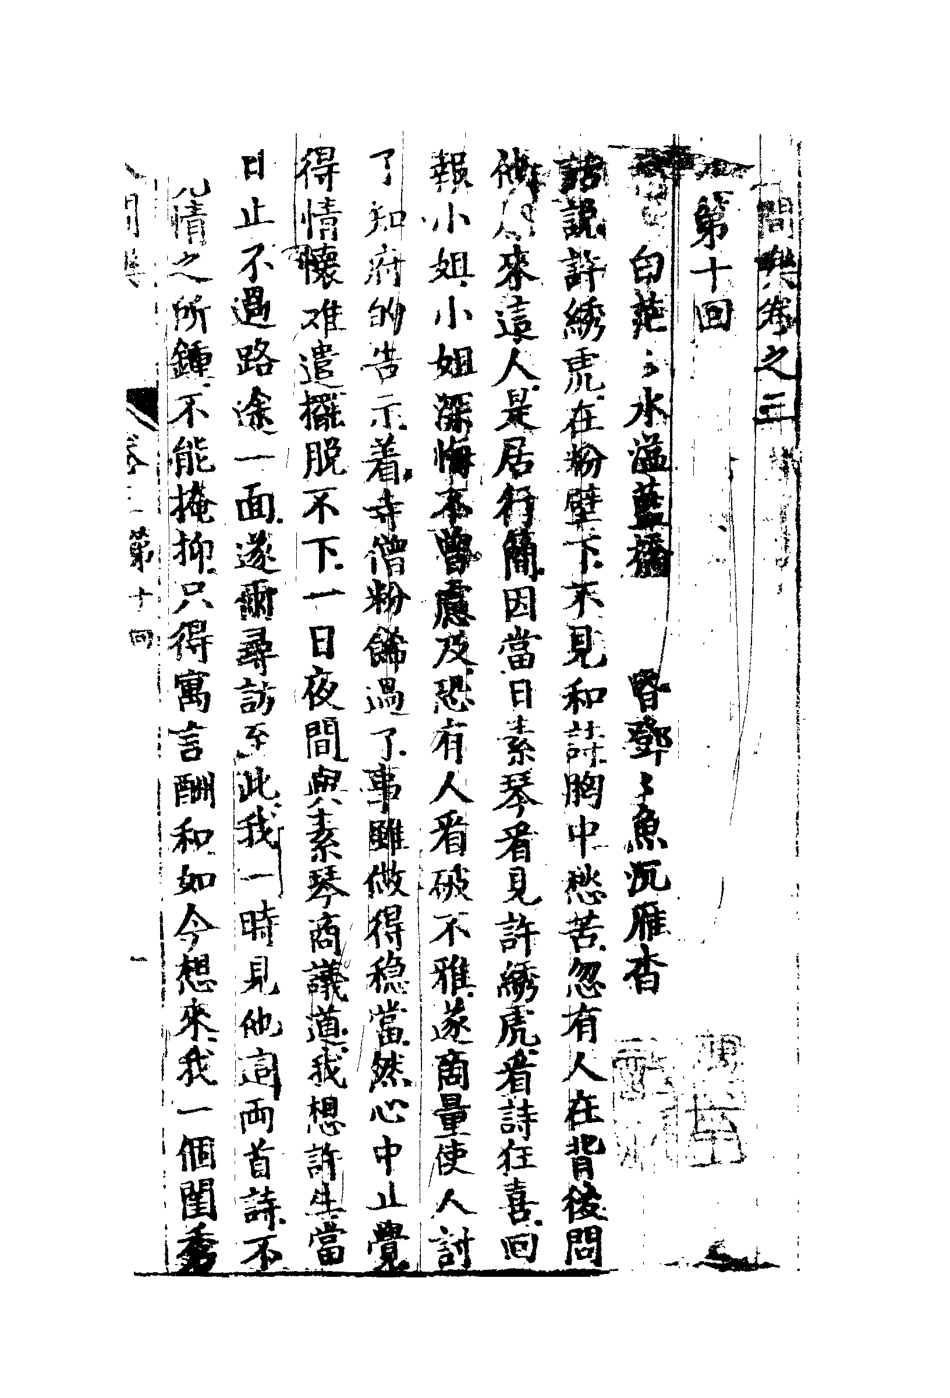 間樂卷之三
第十回
白茫〻水溢藍橋　昏鄧〻魚沉雁杳
話說許綉虎在粉壁下不見和詩胸中愁苦忽有人在背後問
他人來這人是居行簡因當日素琴看見許綉虎看詩狂喜回
報小姐小姐深悔不曾慮及恐有人看破不雅遂商量使人討
了知府的告示着寺僧粉餙過了事雖做得穩當然心中止覺
得情懷难遣擺脫不下一日夜間與素琴商議道我想許生當
日止不過路途一面遂爾尋訪至此我一時見他這両首詩不
情之所鍾不能掩抑只得寓言酬和如今想來我一個閨秀
卷　第十回　一